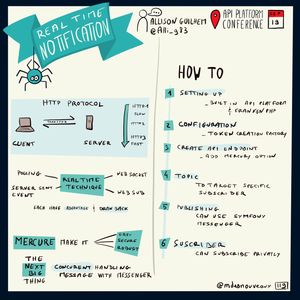 REAL TIME
NOTIFICATION
ALLISON GUILHEM
@Alli_g83
API PLATFORM
CONFERENCE
SEP
13
HTTP PROTOCOL
HTTP1
SLOW
HTTP2
HTTP3
FAST
CLIENT
SERVER
POLLING
WEB SOCKET
REALTIME
TECHNIQUE
SERVER SENT
EVENT
WEB SUB
EACH HAVE ADVANTAGE & DRAW BACK
MERCURE MAKE IT
EASY
SECURE
ROBUST
THE
NEXT
BIG
THING
CONCURENT HANDLING
MESSAGE WITH MESSENGER
HOW TO
1 SETTING UP
BUILT IN API PLATFORM
& FRANKENPHP
2 CONFIGURATION
TOKEN CREATION FACTORY
3 CREATE API ENDPOINT
ADD MERCURE OPTION
4 TOPIC
TO TARGET SPECIFIC
SUBSCRIBER
5 PUBLISHING
CAN USE SYMFONY
MESSENGER
6 SUSCRIBER
CAN SUBSCRIBE PRIVATLY